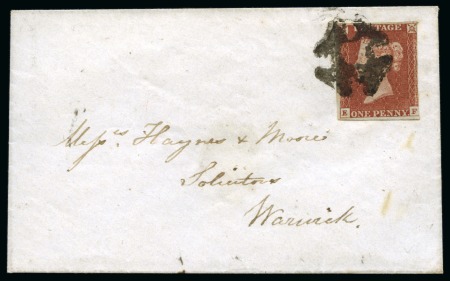 POSTAGE
K F
ONE PENNY
Messrs Haynes & Moore
Solicitors
Warwick.